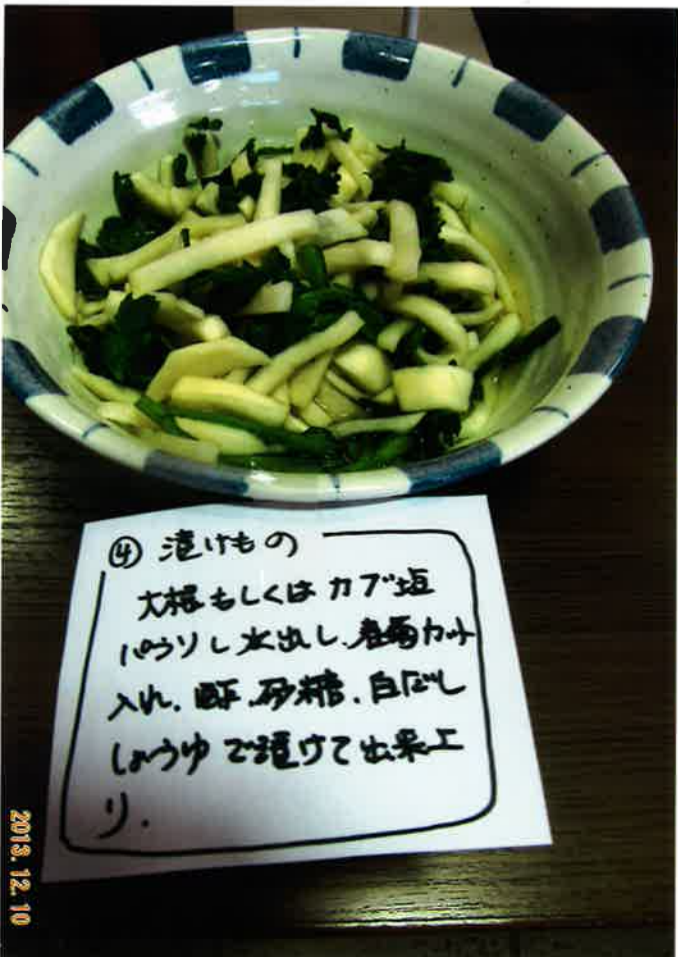 ④ 漬けもの
大根もしくはカブ塩
パラソし水出し、春菊カット
入れ、酢、砂糖、白だし
しょうゆで漬けて出来上
り.
2013.12.10